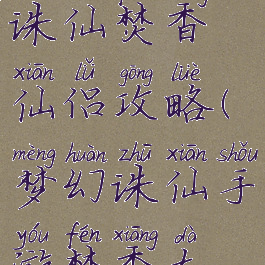 诛仙焚香
xiān lǚ gōng lüè
仙侣攻略(
mèng huàn zhū xiān shǒu
梦幻诛仙手
yóu fén xiāng dà